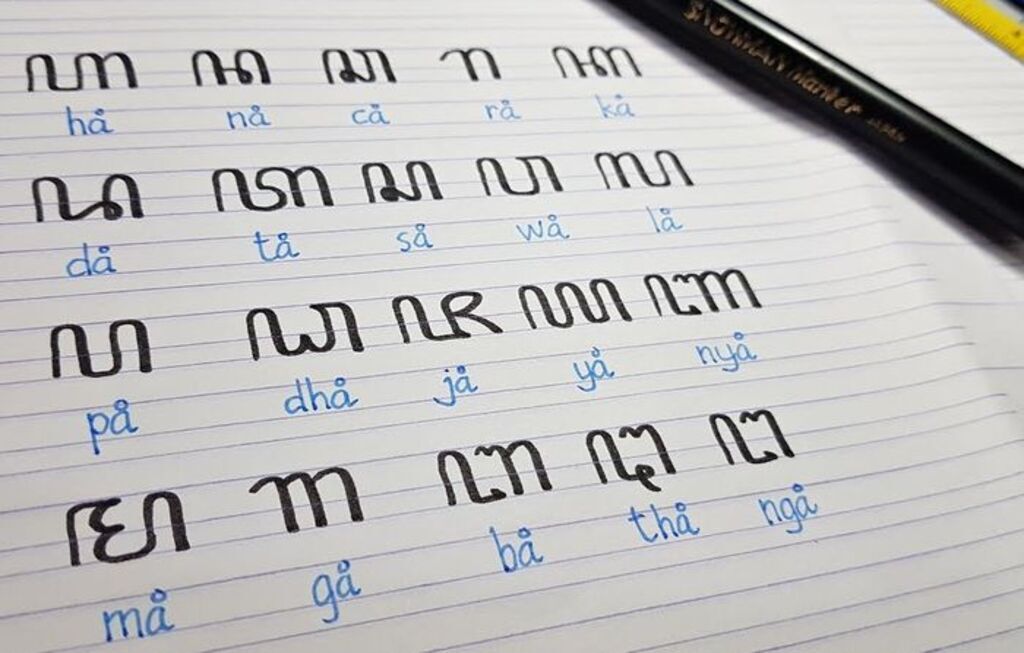 ꦲ ꦤ ꦕ ꦫ ꦏ
hå nå cå rå kå
ꦢ ꦠ ꦱ ꦮ ꦭ
då tå så wå lå
ꦥ ꦝ ꦗ ꦪ ꦚ
på dhå jå yå nyå
ꦩ ꦒ ꦧ ꦛ ꦔ
må gå bå thå ngå
SNOWMAN Marker JAPAN